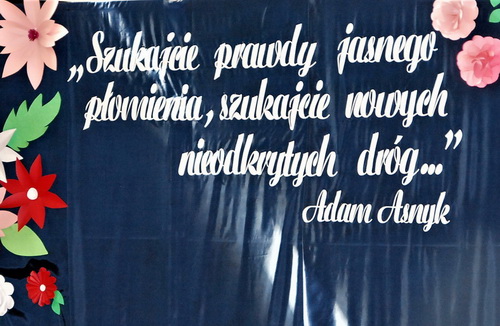 „Szukajcie prawdy jasnego
płomienia, szukajcie nowych
nieodkrytych dróg..."
Adam Asnyk